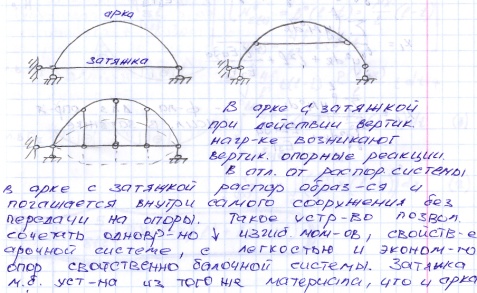 арка
затяжка
В арке с затяжкой
при действии вертик.
нагр-ке возникают
вертик. опорные реакции.
В отл. от распор. системы
в арке с затяжкой распор образ-ся и
погашается внутри самого сооружения без
передачи на опоры. Такое устр-во позвол.
сочетать одновр-но ↓ изгиб. мом-ов, свойств-е
арочной системе, с легкостью и эконом-ю
опор свойственно балочной системы. Затяжка
м.б. уст-на из того же материала, что и арка